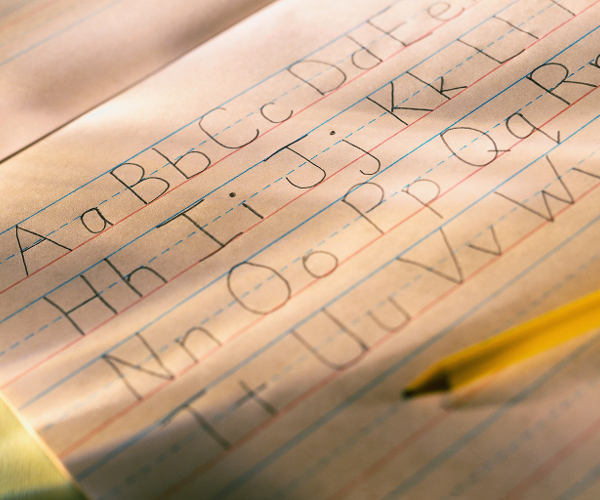 Aa Bb Cc Dd Ee
Hh Ii Jj Kk Ll
Nn Oo Pp Qq R
Tt Uu Vv W